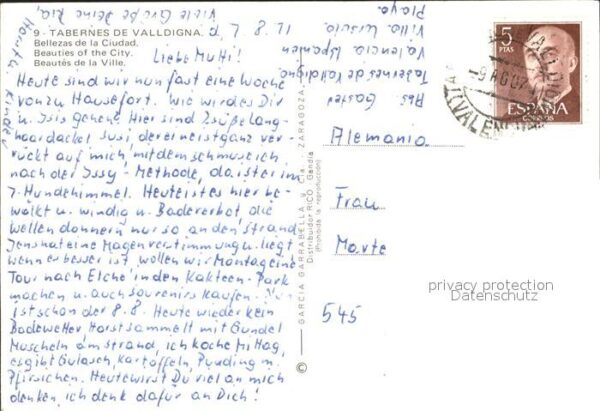 9 - TABERNES DE VALLDIGNA.
Bellezas de la Ciudad.
Beauties of the City.
Beautés de la Ville.
d. 7. 8. 71
Liebe Mutti!
Heute sind wir nun fast eine Woche
von zu Hause fort. Wie wird es Dir
u. Issis gehen? Hier sind 2 süße Lang-
haardackel Susi, der eine ist ganz ver-
rückt auf mich, mit dem schmuse ich
nach der Issy - Methode, da ist er im
7. Hundehimmel. Heute ist es hier be-
wölkt u. windig u. Badeverbot, die
Wellen donnern nur so an den Strand
Jens hat eine Magenverstimmung u. liegt
wenn er besser ist wollen wir Montag eine
Tour nach Elche in den Kakteen-Park
machen u. auch Souvenirs kaufen. Nun
ist schon der 8.8. Heute wieder kein
Badewetter Horst sammelt mit Gundel
Muscheln am Strand, ich koche Mittag,
es gibt Gulasch, Kartoffeln, Pudding m.
Pfirsichen. Heute wirst Du viel an mich
denken, ich denk dafür an Dich!
Viele Grüße Deine
Ria,
Horst u. Kinder
Abs Gaster
Tabernes de Valldigna
Valencia Spanien
Villa Ursula
Playa
GARCIA GARRABELLA y Cía. - ZARAGOZA
Distribuidor RICO. Gandía
(Prohibida la reproducción)
5
PTAS
ESPAÑA
CORREOS
-9 AGO
(VALENCIA)
Alemania
Frau
Marte
545
privacy protection
Datenschutz